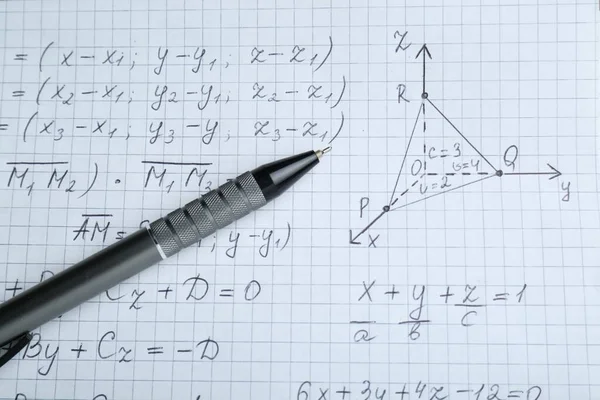 = (x-x1; y-y1; z-z1)
= (x2-x1; y2-y1; z2-z1)
= (x3-x1; y3-y; z3-z1)
M1 M2) · M1 M3
AM = y-y1)
+ Cz + D = 0
By + Cz = -D
z
R
c=3
O в=4 Q
y
P
x
x + y + z = 1
a в c
6x+3y+4z-12=0